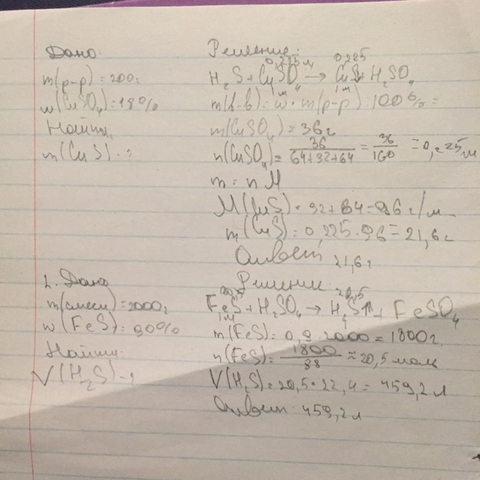 Дано:
m(р-р) = 200г
w(CuSO4) = 18%
Найти:
m(CuS) - ?
Решение:
0,225м 0,225
H2S + CuSO4 → CuS + H2SO4
1м 1м
m(в-в) = w · m(р-р) : 100% =
m(CuSO4) = 36г
n(CuSO4) = 36/64+32+64 = 36/160 = 0,225м
m = n M
M(CuS) = 32 + 64 = 96г/м
m(CuS) = 0,225 · 96 = 21,6г
Ответ 21,6г
2. Дано
m(смеси) = 2000г
w(FeS) = 90%
Найти:
V(H2S) - ?
Решение:
20,5 20,5
FeS + H2SO4 → H2S↑ + FeSO4
1м 1
m(FeS) = 0,9 · 2000 = 1800г
n(FeS) = 1800/88 ≈ 20,5 моль
V(H2S) = 20,5 · 22,4 = 459,2л
Ответ: 459,2л